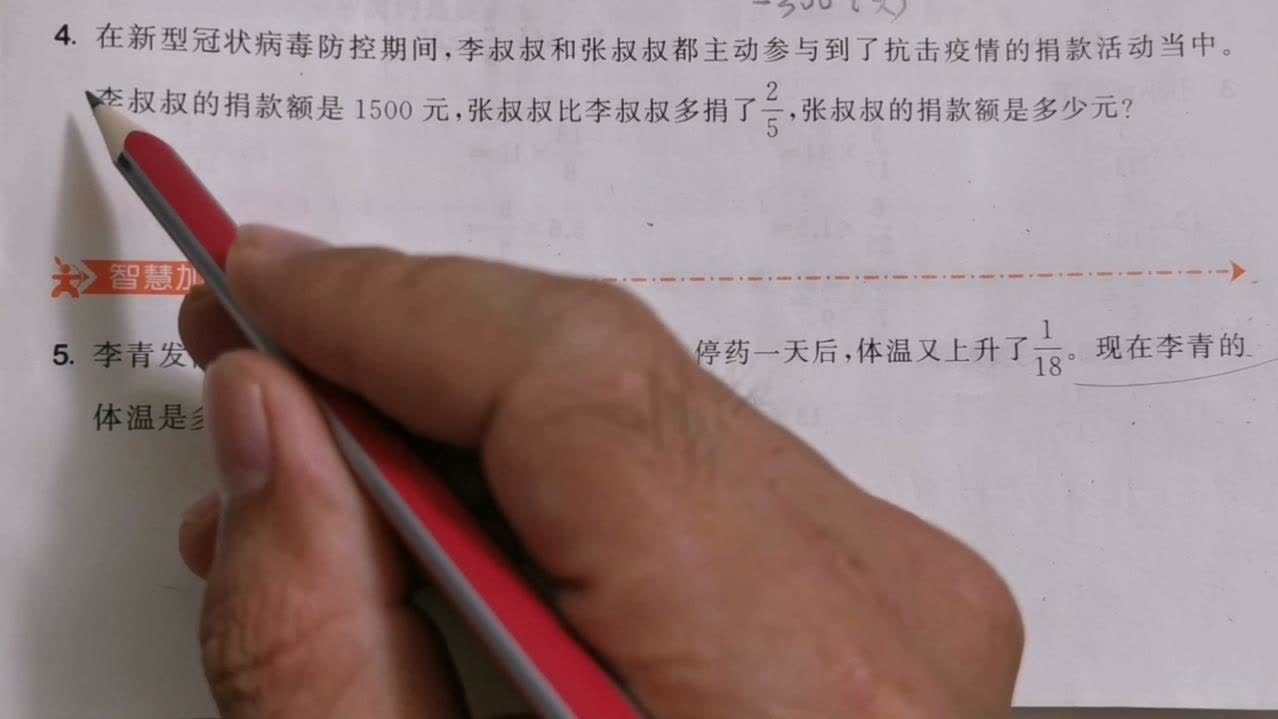 4. 在新型冠状病毒防控期间,李叔叔和张叔叔都主动参与到了抗击疫情的捐款活动当中。
李叔叔的捐款额是 1500 元,张叔叔比李叔叔多捐了2/5,张叔叔的捐款额是多少元?
智慧加
5. 李青发 停药一天后,体温又上升了1/18。现在李青的
体温是多